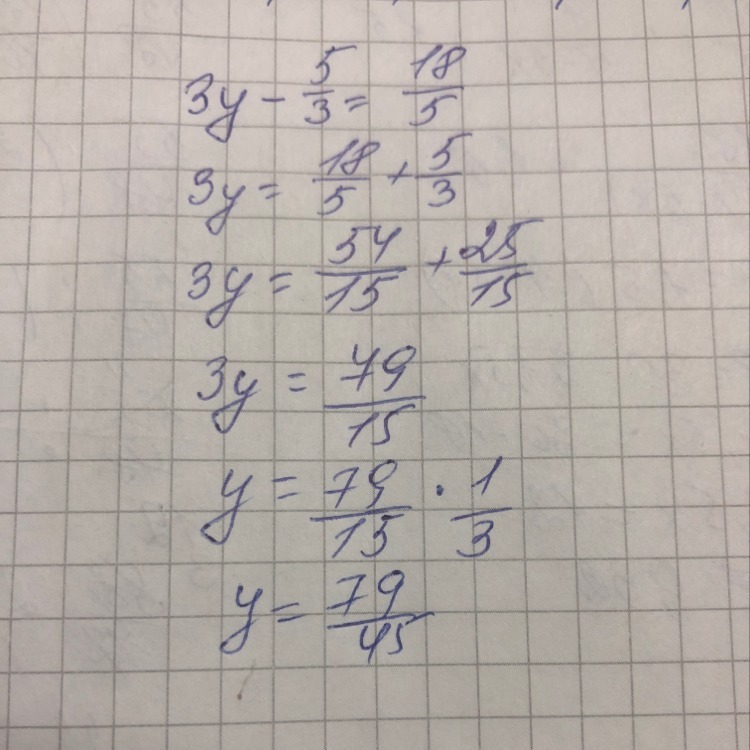 3y - 5/3 = 18/5
3y = 18/5 + 5/3
3y = 54/15 + 25/15
3y = 79/15
y = 79/15 · 1/3
y = 79/45